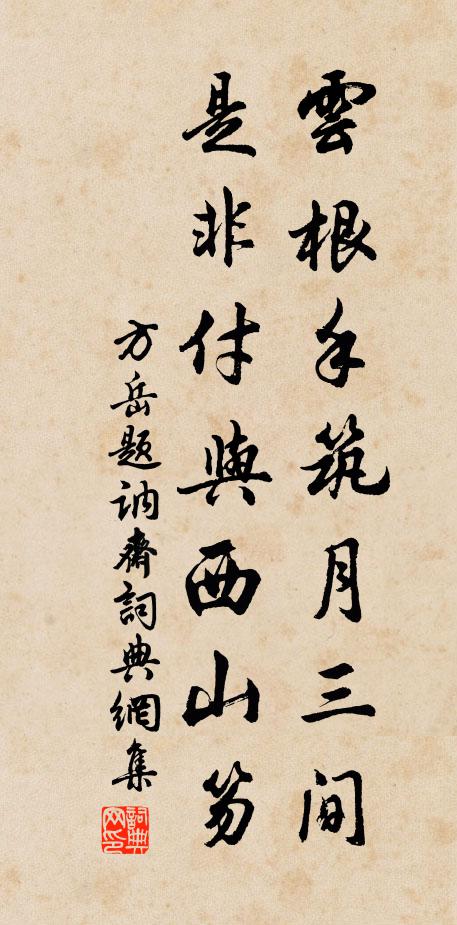 雲根手筑月三间
是非付與西山笏
方岳題訥齋詞典網集
詞典网印